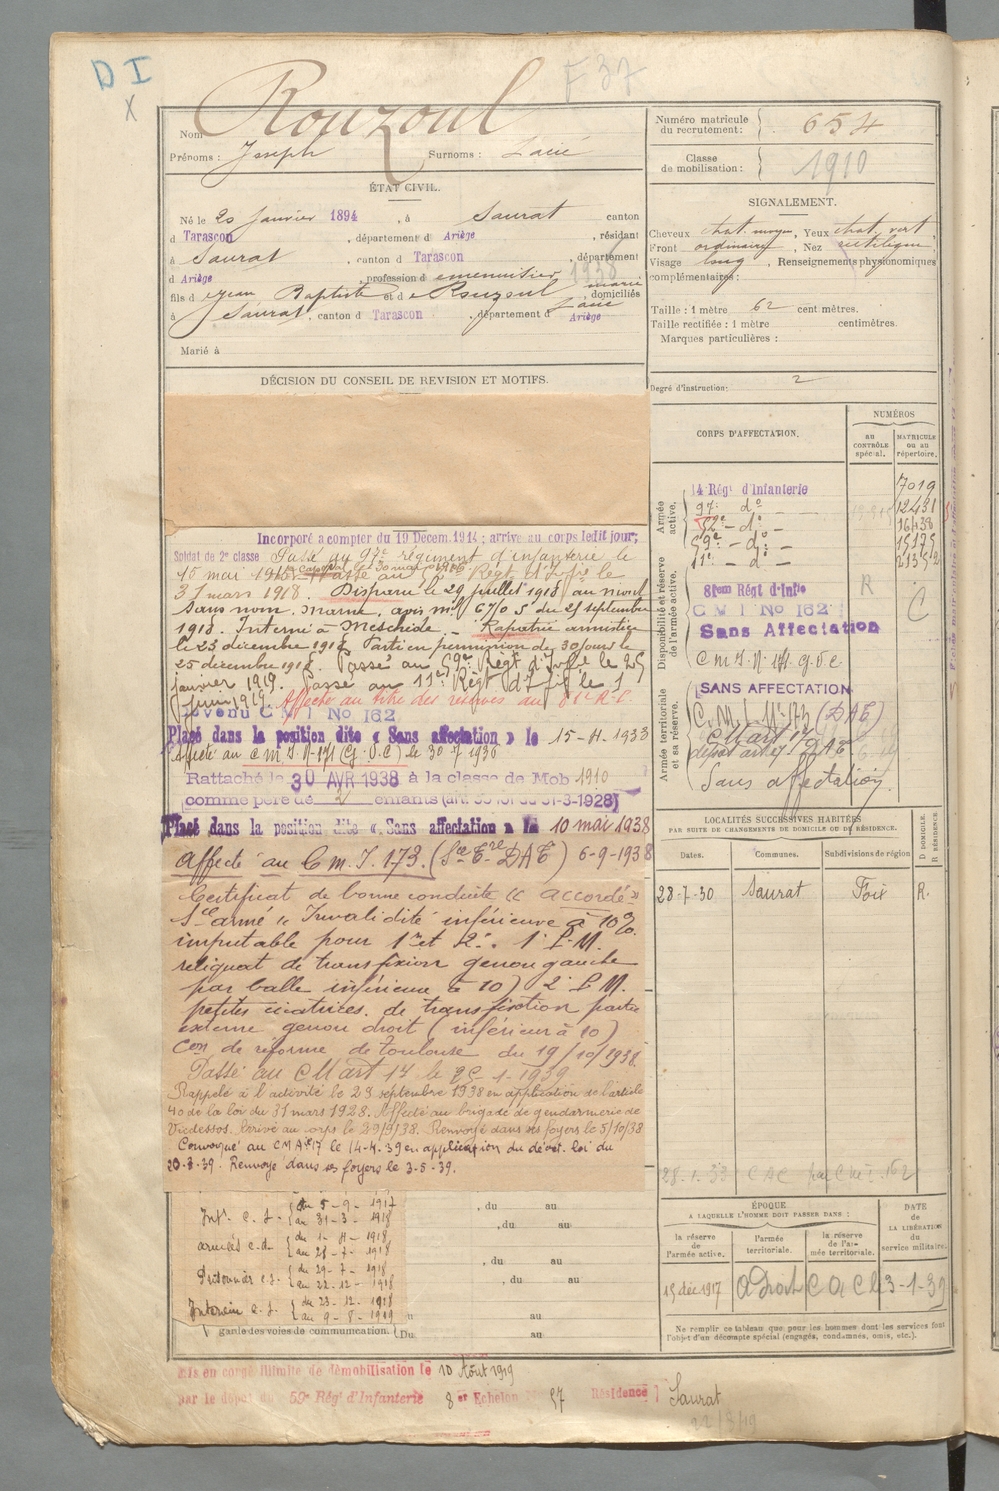 D I
X
F 37
Nom Rouzoul
Prénoms : Joseph Surnoms :
ÉTAT CIVIL.
Né le 20 janvier 1894, à Saurat canton
d Tarascon, département d Ariège, résidant
à Saurat, canton d Tarascon, département
d Ariège, profession d menuisier 1938
fils d Jean Baptiste et d Rouzoul Marie domiciliés
à Saurat, canton d Tarascon, département d Ariège
Marié à
DÉCISION DU CONSEIL DE REVISION ET MOTIFS.
Incorporé a compter du 19 Décem. 1914 ; arrivé au corps ledit jour;
Soldat de 2e classe Passé au 97e régiment d'infanterie le
15 mai 1916 Caporal le 30 mai 1916 Passé au Régt d'Infie le
31 mars 1918. Disparu le 29 juillet 1918 au nord
Sans nom. Marne, avis ml 670.5 du 21 septembre
1918. Interné à Meschede. Rapatrié armistice
le 23 décembre 1918 Parti en permission de 30 jours le
25 décembre 1918. Passé au 59e Régt d'Infie le 25
janvier 1919. Passé au 11e Régt d'Infie le 1
juin 1919. Affecté au titre des réserves au 81e R.I.
Devenu C M I No 162
Placé dans la position dite « Sans affectation » le 15-11-1933
Affecté au C.M.I. N°171 (G.V.C) le 30 7 1936
Rattaché le 30 AVR 1938 à la classe de Mob 1910
comme père de 2 enfants (art. 58 loi du 31-3-1928)
Placé dans la position dite « Sans affectation » le 10 mai 1938
Affecté au C.M.I. 173. (Son Ere DAT) 6-9-1938
Certificat de bonne conduite « accordé »
Sce armé « Invalidité inférieure à 10%
imputable pour 1° et 2°. 1° P.M.
reliquat de transfixion genou gauche
par balle inférieure à 10) 2° P.M.
petites cicatrices de transfixion partie
externe genou droit (inférieur à 10)
Con de réforme de Toulouse du 19/10/1938.
Passé au C M art 17 le 25-1-1939
Rappelé à l'activité le 23 septembre 1938 en application de l'article
40 de la loi du 31 mars 1928. Affecté au brigade de gendarmerie de
Vicdessos. Arrivé au corps le 29/9/38. Renvoyé dans ses foyers le 5/10/38
Convoqué au CM Aie 17 le 14-4-39 en application du décret. loi du
20-3-39. Renvoyé dans ses foyers le 3-5-39.
Intr. C.S. du 5-9-1917 au 31-3-1918
armées C.D. du 1-4-1918 au 28-7-1918
Prisonnier C.S. du 29-7-1918 au 22-12-1918
Intérieur C.S. du 23-12-1918 au 9-8-1919
, du au
, du au
, du au
, du au
au
garde des voies de communication. Du au
Mis en congé illimité de démobilisation le 10 Août 1919
par le dépôt du 59e Rég' d'Infanterie 8 er Echelon N° 57 Résidence : Saurat
22/8/19
Numéro matricule du recrutement : 654
Classe de mobilisation : 1910
SIGNALEMENT.
Cheveux chat. moyen, Yeux chat. vert
Front ordinaire, Nez rectiligne
Visage long, Renseignements physionomiques
complémentaires :
Taille : 1 mètre 62 centimètres.
Taille rectifiée : 1 mètre centimètres.
Marques particulières :
Degré d'instruction : 2
CORPS D'AFFECTATION.
NUMÉROS
au CONTRÔLE spécial.
MATRICULE ou au répertoire.
Armée active.
14 Régt d'Infanterie 7019
97e do 12431
52e do 16438
59e do 15175
11e do
Disponibilité et réserve de l'armée active.
81em Régt d'Infie R
C M I No 162 C
Sans Affectation
C M I N° 171 G.V.C.
Armée territoriale et sa réserve.
SANS AFFECTATION
C.M.I. N° 173 (DAT)
C M art 17
dépôt art 17 DAT
Sans affectation
LOCALITÉS SUCCESSIVES HABITÉES
PAR SUITE DE CHANGEMENTS DE DOMICILE OU DE RÉSIDENCE.
Dates. Communes. Subdivisions de région
D DOMICILE. R RÉSIDENCE.
28-7-30 Saurat Foix R.
28-1-33 CAC par CMI 162
ÉPOQUE
A LAQUELLE L'HOMME DOIT PASSER DANS :
DATE de LA LIBÉRATION du service militaire.
la réserve de l'armée active.
l'armée territoriale.
la réserve de l'armée territoriale.
15 déc 1917 A Droit C A C le 3-1-39
Ne remplir ce tableau que pour les hommes dont les services font
l'objet d'un décompte spécial (engagés, condamnés, omis, etc.).